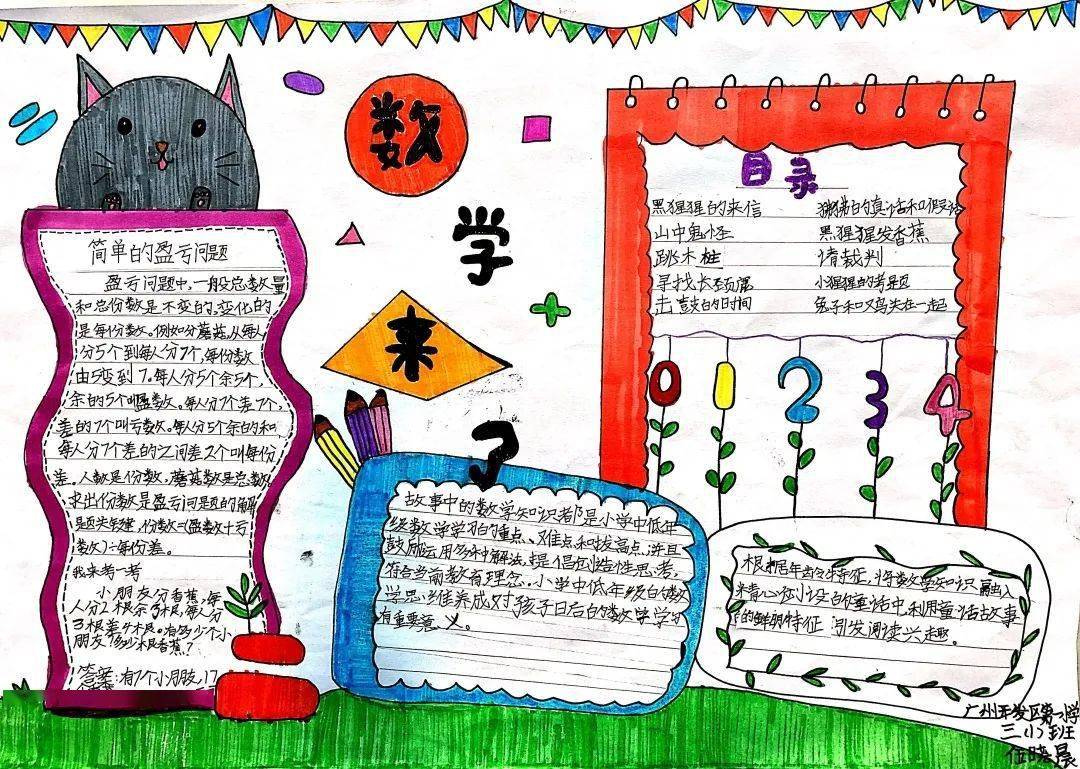 数
学
来
了
简单的盈亏问题
盈亏问题中,一般总数量
和总份数是不变的,变化的
是每份数。例如分蘑菇,从每人
分5个到每人分7个,每份数
由5变到7。每人分5个余5个,
余的5个叫盈数。每人分7个差7个,
差的7个叫亏数。每人分5个余的和
每人分7个差的之间差2个叫每份
差。人数是份数,蘑菇数是总数,
求出份数是盈亏问题的解
题关键,份数=(盈数+亏
数)÷每份差。
我来考一考
小朋友分香蕉,每
人分2根余3根,每人分
3根差4根。有多少个小
朋友?多少根香蕉?
答案:有7个小朋友,17
目录
黑猩猩的来信
狒狒的真话和假话
山中鬼怪
黑猩猩发香蕉
跳木桩
猪裁判
寻找长颈鹿
小猩猩的考题
击鼓的时间
兔子和乌央在一起
0 1 2 3 4
故事中的数学知识都是小学中低年
级数学学习的重点、难点和拔高点,并且
鼓励运用多种解法,提倡创造性思考,
符合当前教育理念。小学中低年级的数
学思维养成对孩子日后的数学学习
有重要意义。
根据年龄特征,将数学知识融入
精心编设的童话中,利用童话故事
的鲜明特征引发阅读兴趣。
广州开发区第一小学
三(1)班
伍晓晨